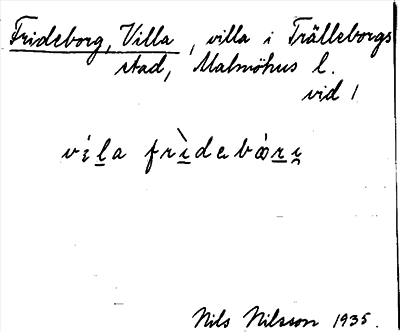 Frideborg, Villa, villa i Trälleborgs
stad, Malmöhus l.
vid 1
víla frìdebori
Nils Nilsson 1935.